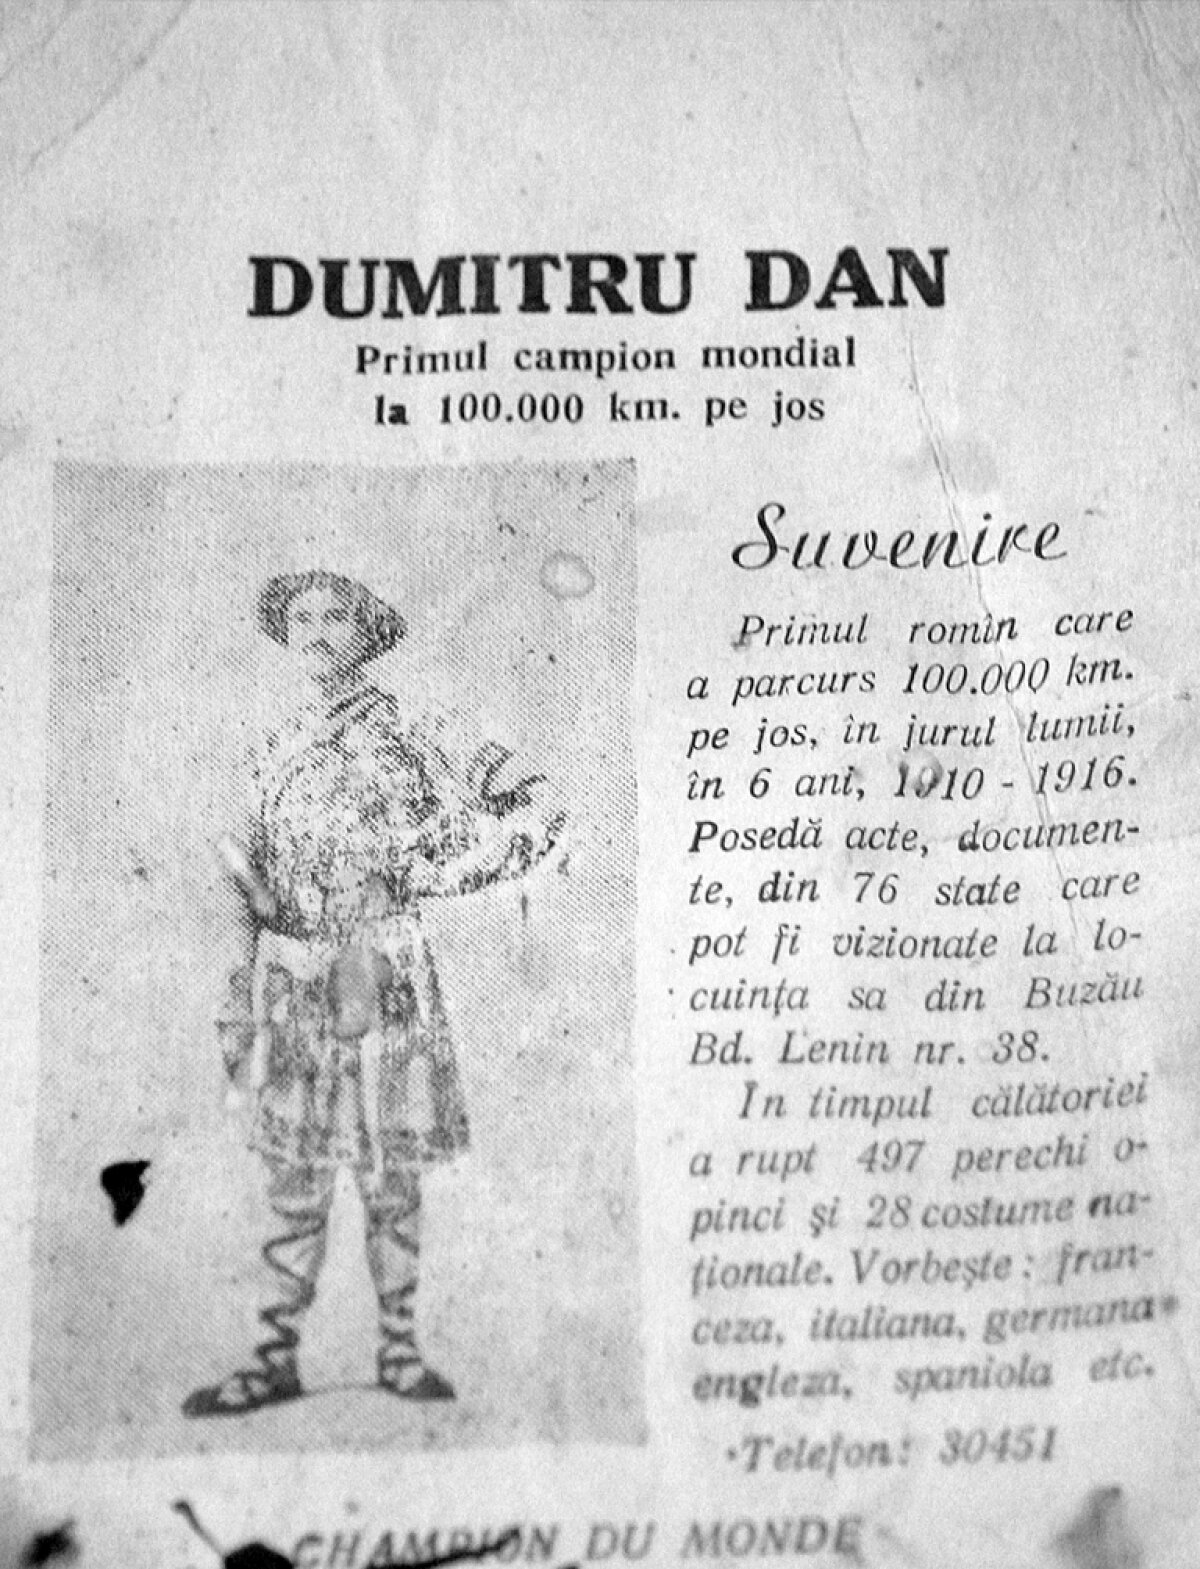 DUMITRU DAN
Primul campion mondial
la 100.000 km. pe jos
Suvenire
Primul romîn care
a parcurs 100.000 km.
pe jos, în jurul lumii,
în 6 ani, 1910 - 1916.
Posedă acte, documen-
te, din 76 state care
pot fi vizionate la lo-
cuinţa sa din Buzău
Bd. Lenin nr. 38.
In timpul călătoriei
a rupt 497 perechi o-
pinci şi 28 costume na-
ţionale. Vorbeşte : fran-
ceza, italiana, germana
engleza, spaniola etc.
Telefon: 30451
CHAMPION DU MONDE